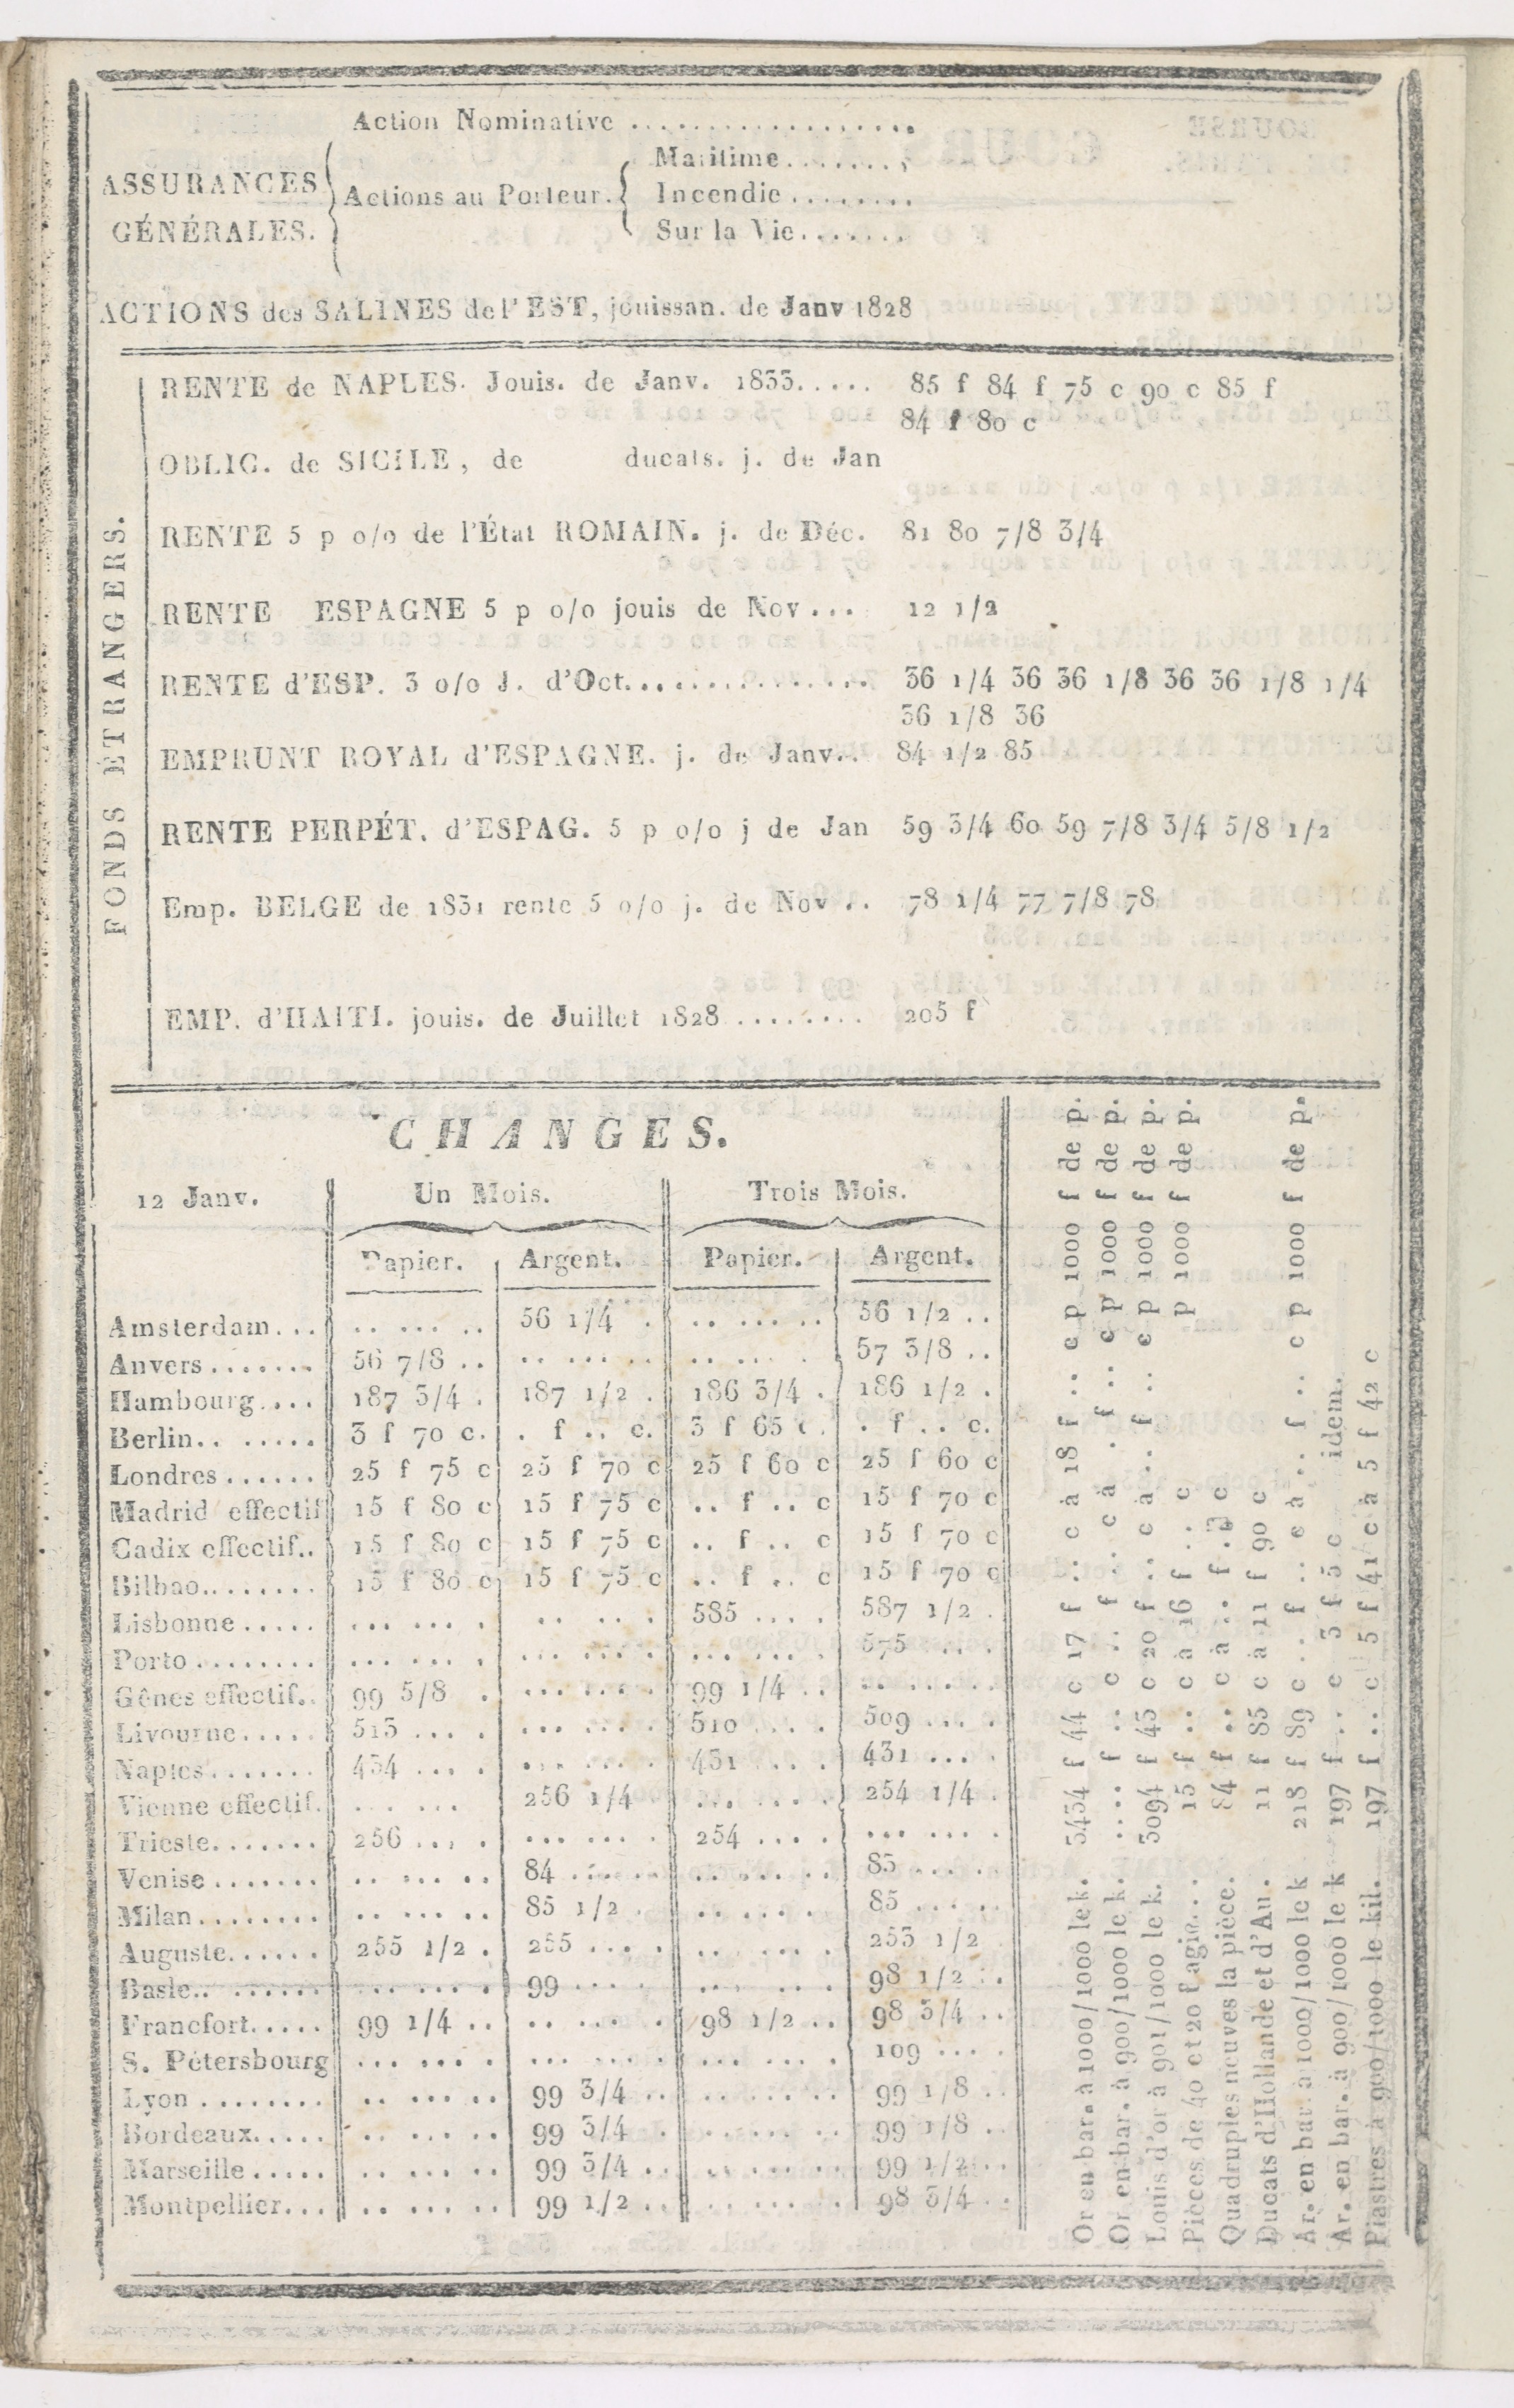 Action Nominative ..................
ASSURANCES GÉNÉRALES.
Actions au Porteur.
Maritime........
Incendie ........
Sur la Vie.......
ACTIONS des SALINES de l'EST, jouissan. de Janv 1828
FONDS ÉTRANGERS.
RENTE de NAPLES. Jouis. de Janv. 1833..... 85 f 84 f 75 c 90 c 85 f
84 f 80 c
OBLIG. de SICILE, de ducats. j. de Jan
RENTE 5 p o/o de l'État ROMAIN. j. de Déc. 81 80 7/8 3/4
RENTE ESPAGNE 5 p o/o jouis de Nov... 12 1/2
RENTE d'ESP. 3 o/o J. d'Oct............... 36 1/4 36 36 1/8 36 36 1/8 1/4
36 1/8 36
EMPRUNT ROYAL d'ESPAGNE. j. de Janv.. 84 1/2 85
RENTE PERPÉT. d'ESPAG. 5 p o/o j de Jan 59 3/4 60 59 7/8 3/4 5/8 1/2
Emp. BELGE de 1831 rente 5 o/o j. de Nov .. 78 1/4 77 7/8 78
EMP. d'HAITI. jouis. de Juillet 1828 ........ 205 f
CHANGES.
12 Janv. Un Mois. Trois Mois.
Papier. Argent. Papier. Argent.
Amsterdam... .. ... .. 56 1/4 . .. ... .. 56 1/2 ..
Anvers....... 56 7/8 .. .. ... .. .. ... . 57 3/8 ..
Hambourg.... 187 3/4 . 187 1/2 . 186 3/4 . 186 1/2 .
Berlin.. ..... 3 f 70 c. . f .. c. 3 f 65 c. . f .. c.
Londres...... 25 f 75 c 25 f 70 c 25 f 60 c 25 f 60 c
Madrid effectif 15 f 80 c 15 f 75 c .. f .. c 15 f 70 c
Cadix effectif.. 15 f 80 c 15 f 75 c .. f .. c 15 f 70 c
Bilbao........ 15 f 80 c 15 f 75 c .. f .. c 15 f 70 c
Lisbonne ..... ... ... . .. .. . 585 .... 587 1/2 .
Porto ........ ... ... . ... ... . ... ... . 575 ... .
Gênes effectif.. 99 5/8 . ... ... . 99 1/4 .. .. ... ..
Livourne..... 515 .... ... ... . 510 .... 509 ... .
Naples....... 434 .... ... ... . 431 .... 431 ... .
Vienne effectif. ... ... 256 1/4 ... ... . 254 1/4 .
Trieste....... 256 .... ... ... . 254 .... ... ... .
Venise ....... .. ... .. 84 ... .. .. ... . 85 ... ..
Milan........ .. ... .. 85 1/2 . .. ... . 85 ... ..
Auguste...... 255 1/2 . 255 ... . .. ... . 253 1/2
Basle.. ...... ... ... . 99 .... .. ... . 98 1/2 ..
Francfort..... 99 1/4 .. .. ... . 98 1/2 .. 98 3/4 ..
S. Pétersbourg ... ... . ... ... . ... ... . 109 ... .
Lyon ........ .. ... .. 99 3/4 .. .. ... .. 99 1/8 ..
Bordeaux..... .. ... .. 99 3/4 . .. ... .. 99 1/8 ..
Marseille ..... .. ... .. 99 3/4 .. .. ... .. 99 1/2 ..
Montpellier... .. ... .. 99 1/2 .. .. ... .. 98 3/4 ..
Or en bar. à 1000/1000 le k. 3434 f 44 c 17 f .. c à 18 f .. c p 1000 f de p.
Or en bar. à 900/1000 le k. .... f .. c .. f .. c à . f .. c p 1000 f de p.
Louis d'or à 901/1000 le k. 3094 f 45 c 20 f .. c à .. f .. c p 1000 f de p.
Pièces de 40 et 20 f agio... 15 f .. c à 16 f .. c p 1000 f de p.
Quadruples neuves la pièce. 84 f .. c à .. f . c
Ducats d'Hollande et d'Au. 11 f 85 c à 11 f 90 c
Ar. en bar. à 1000/1000 le k 218 f 89 c .. f .. c à .. f .. c p 1000 f de p.
Ar. en bar. à 900/1000 le k 197 f .. c 3 f 5 c idem.
Piastres à 900/1000 le kil. 197 f .. c 5 f 41 c à 5 f 42 c